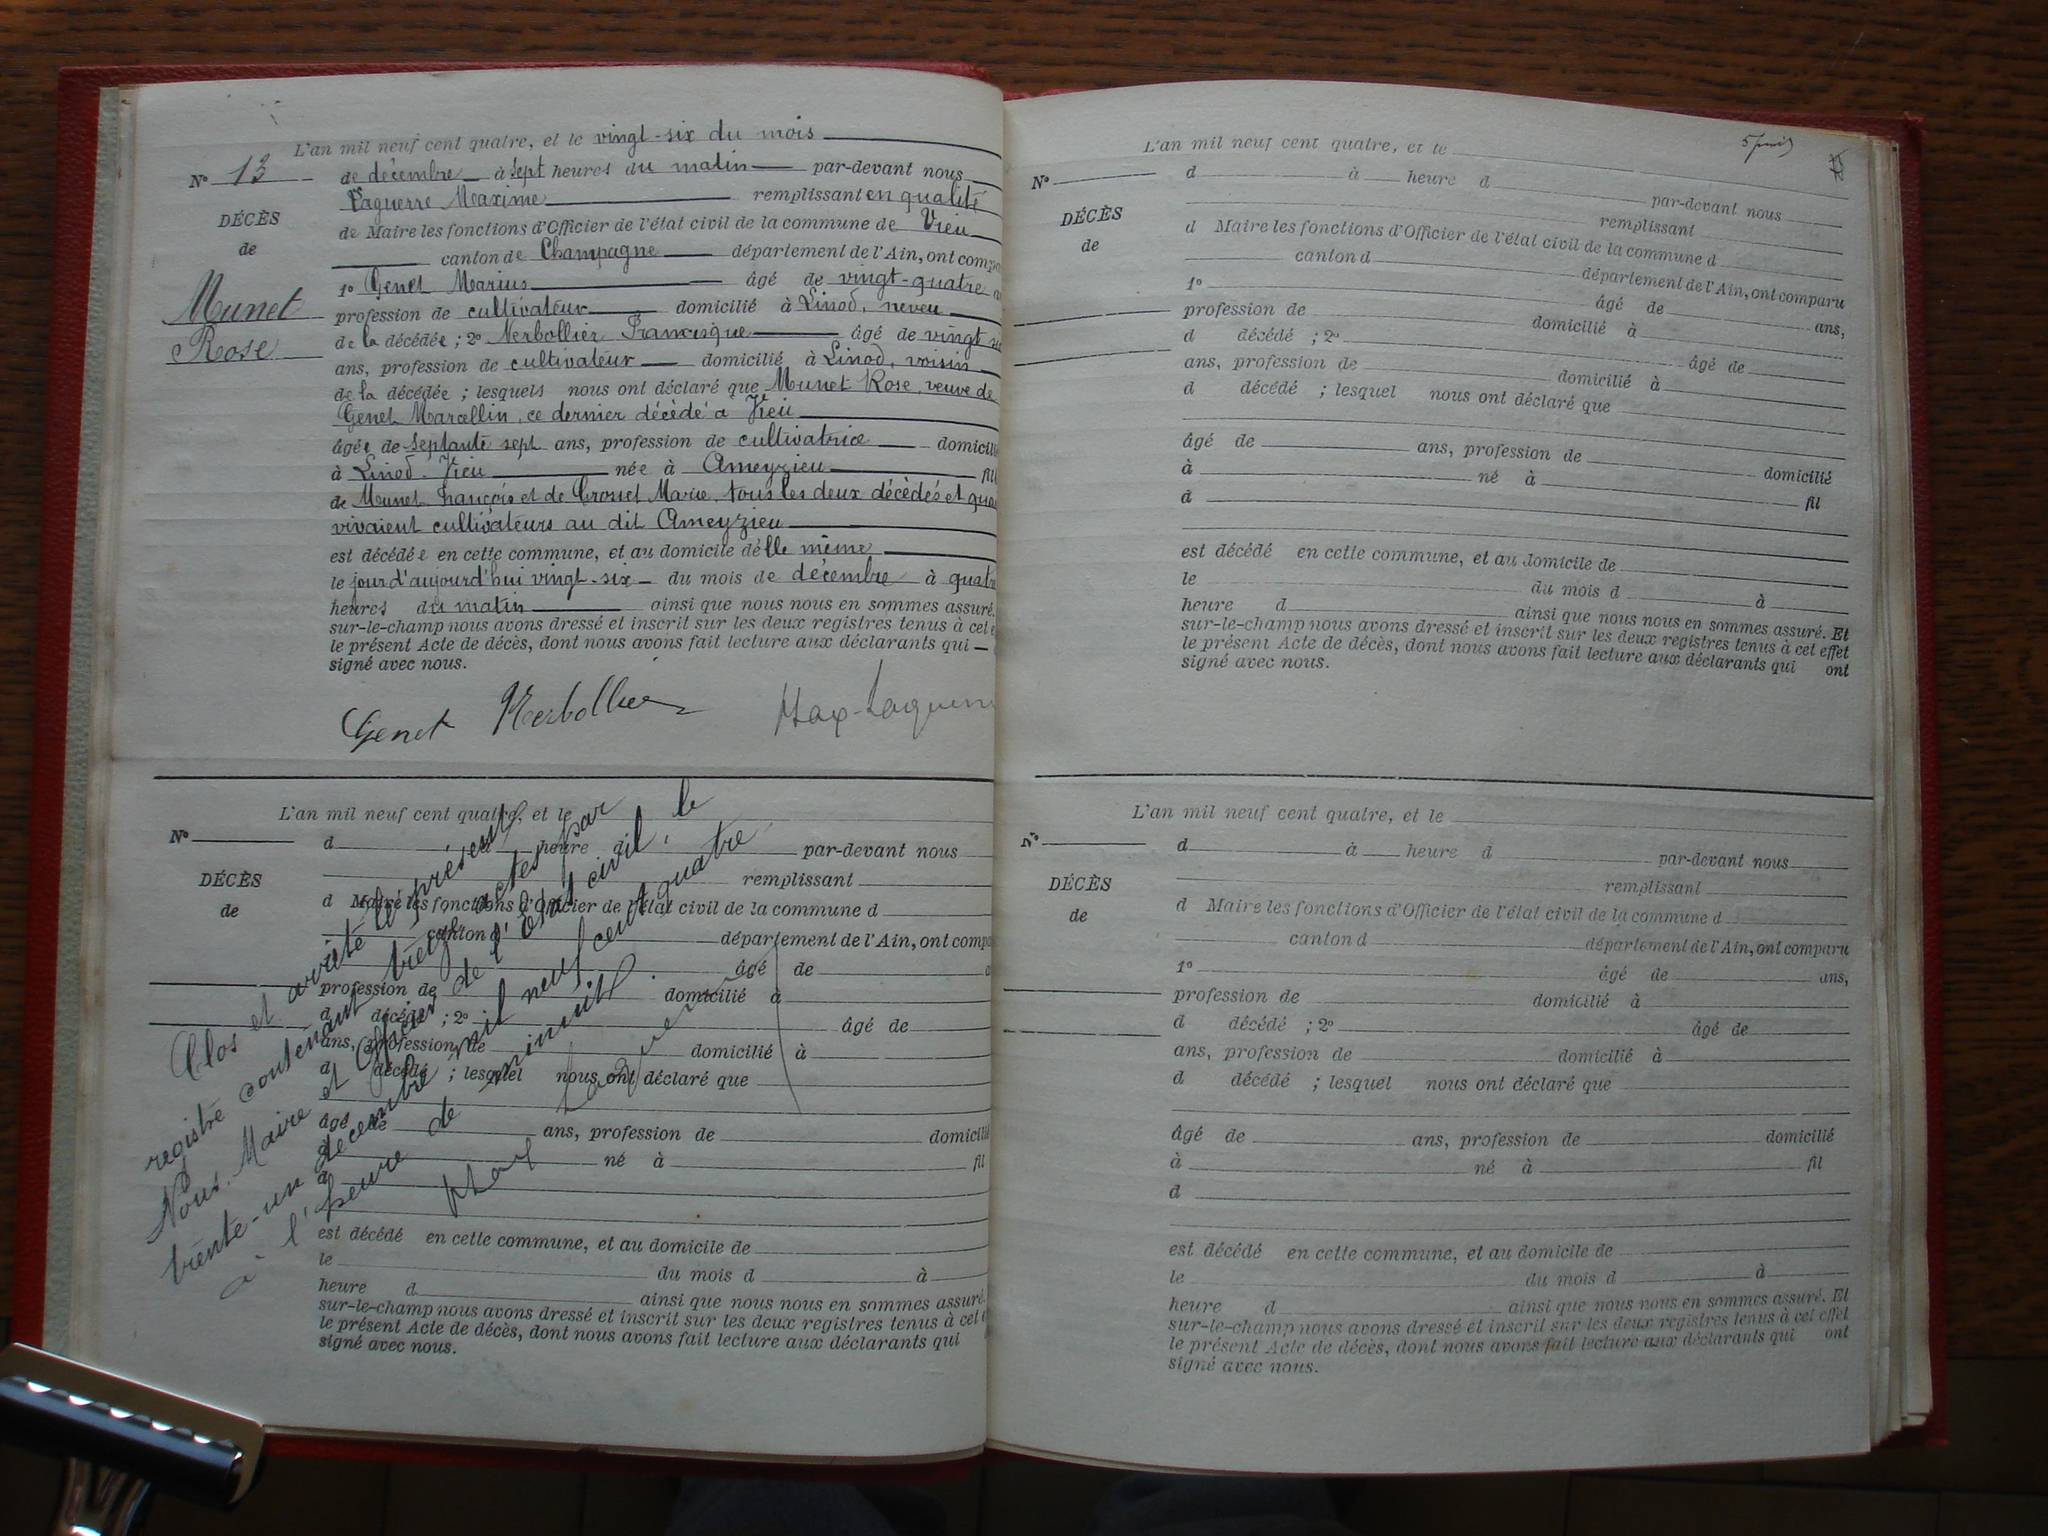 L'an mil neuf cent quatre, et le vingt-six du mois
N° 13 de décembre à sept heures du matin par-devant nous
Laguerre Maxime remplissant en qualité
DÉCÈS
de Maire les fonctions d'Officier de l'état civil de la commune de Vieu
de
canton de Champagne département de l'Ain, ont comp
1° Genet Marius âgé de vingt-quatre
Munet
profession de cultivateur domicilié à Linod, neveu
de la décédée ; 2° Nerbollier Francisque âgé de vingt
Rose
ans, profession de cultivateur domicilié à Linod, voisin
de la décédée ; lesquels nous ont déclaré que Munet Rose, veuve de
Genet Marcellin, ce dernier décédé à Vieu
âgée de septante sept ans, profession de cultivatrice domicili
à Linod-Vieu née à Ameyzieu fil
de Munet François et de Marie, tous les deux décédés et
vivaient cultivateurs au dit Ameyzieu
est décédée en cette commune, et au domicile d'elle même
le jour d'aujourd'hui vingt-six du mois de décembre à quatre
heures du matin ainsi que nous nous en sommes assuré.
sur-le-champ nous avons dressé et inscrit sur les deux registres tenus à cet
le présent Acte de décès, dont nous avons fait lecture aux déclarants qui
signé avec nous.
Genet Nerbollier Max-Laguerre
L'an mil neuf cent quatre, et le
N° d à heure d par-devant nous
remplissant
DÉCÈS
d Maire les fonctions d'Officier de l'état civil de la commune d
de
canton d département de l'Ain, ont comp
âgé de
profession de domicilié à
d décédé ; 2° âgé de
ans, profession de domicilié à
d décédé ; lesquel nous ont déclaré que
âgé de ans, profession de domicili
à né à fil
d
est décédé en cette commune, et au domicile de
le du mois d à
heure d ainsi que nous nous en sommes assuré.
sur-le-champ nous avons dressé et inscrit sur les deux registres tenus à cet
le présent Acte de décès, dont nous avons fait lecture aux déclarants qui
signé avec nous.
Clos et arrêté le présent
registre contenant treize actes par
Nous, Maire et Officier de l'Etat civil, le
trente-un décembre mil neuf cent quatre
à l'heure de minuit.
Max Laguerre
L'an mil neuf cent quatre, et le
N° d à heure d par-devant nous
remplissant
DÉCÈS
d Maire les fonctions d'Officier de l'état civil de la commune d
de
canton d département de l'Ain, ont comparu
1° âgé de ans,
profession de domicilié à
d décédé ; 2° âgé de
ans, profession de domicilié à
d décédé ; lesquel nous ont déclaré que
âgé de ans, profession de domicilié
à né à fil
d
est décédé en cette commune, et au domicile de
le du mois d à
heure d ainsi que nous nous en sommes assuré. Et
sur-le-champ nous avons dressé et inscrit sur les deux registres tenus à cet effet
le présent Acte de décès, dont nous avons fait lecture aux déclarants qui ont
signé avec nous.
L'an mil neuf cent quatre, et le
N° d à heure d par-devant nous
remplissant
DÉCÈS
d Maire les fonctions d'Officier de l'état civil de la commune d
de
canton d département de l'Ain, ont comparu
1° âgé de ans,
profession de domicilié à
d décédé ; 2° âgé de
ans, profession de domicilié à
d décédé ; lesquel nous ont déclaré que
âgé de ans, profession de domicilié
à né à fil
d
est décédé en cette commune, et au domicile de
le du mois d à
heure d ainsi que nous nous en sommes assuré. Et
sur-le-champ nous avons dressé et inscrit sur les deux registres tenus à cet effet
le présent Acte de décès, dont nous avons fait lecture aux déclarants qui ont
signé avec nous.